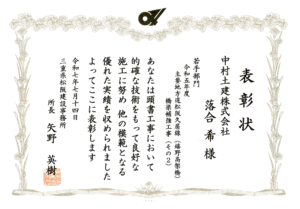 表彰状
中村土建株式会社
落合 希 様
若手部門
令和五年度
主要地方道松阪久居線(嬉野高架橋)
橋梁補強工事(その2)
あなたは頭書工事において
的確な技術をもって良好な
施工に努め 他の模範となる
優れた実績を収められました
よってここに表彰します
令和七年七月十四日
三重県松阪建設事務所
所長 矢野 英樹